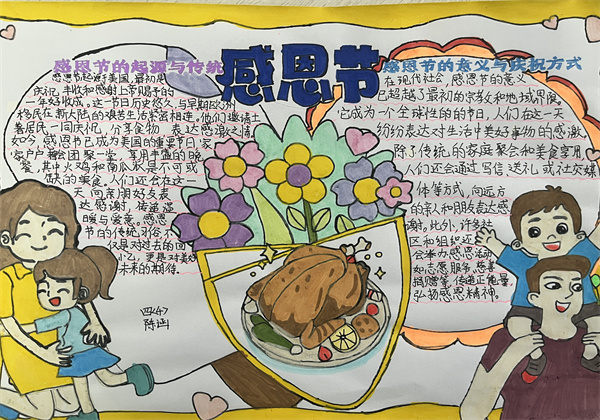 感恩节
感恩节的起源与传统
感恩节起源于美国,最初是
庆祝丰收和感谢上苍赐予的
一年好收成。这一节日历史悠久,与早期欧洲
移民在新大陆的艰苦生活紧密相连。他们邀请土
著居民一同庆祝,分享食物,表达感激之情。
如今,感恩节已成为美国的重要节日,家
家户户都会团聚一堂,享用丰盛的晚
餐,其中火鸡和南瓜派是不可或
缺的美食。人们还会在这一
天向亲朋好友表
达感谢,传递温
暖与爱意。感恩
节的传统,不
仅是对过去的回
忆,更是对美好
未来的期待。
四(4)
陈涵
感恩节的意义与庆祝方式
在现代社会,感恩节的意义
已超越了最初的宗教和地域界限,
它成为一个全球性的的节日,人们在这一天
纷纷表达对生活中美好事物的感激。
除了传统的家庭聚会和美食享用,
人们还会通过写信、送礼或社交媒
体等方式,向远方
的亲人和朋友表达感
谢。此外,许多社
区和组织还
会举办感恩活动,
如志愿服务、慈善
捐赠等,传递正能量,
弘扬感恩精神。